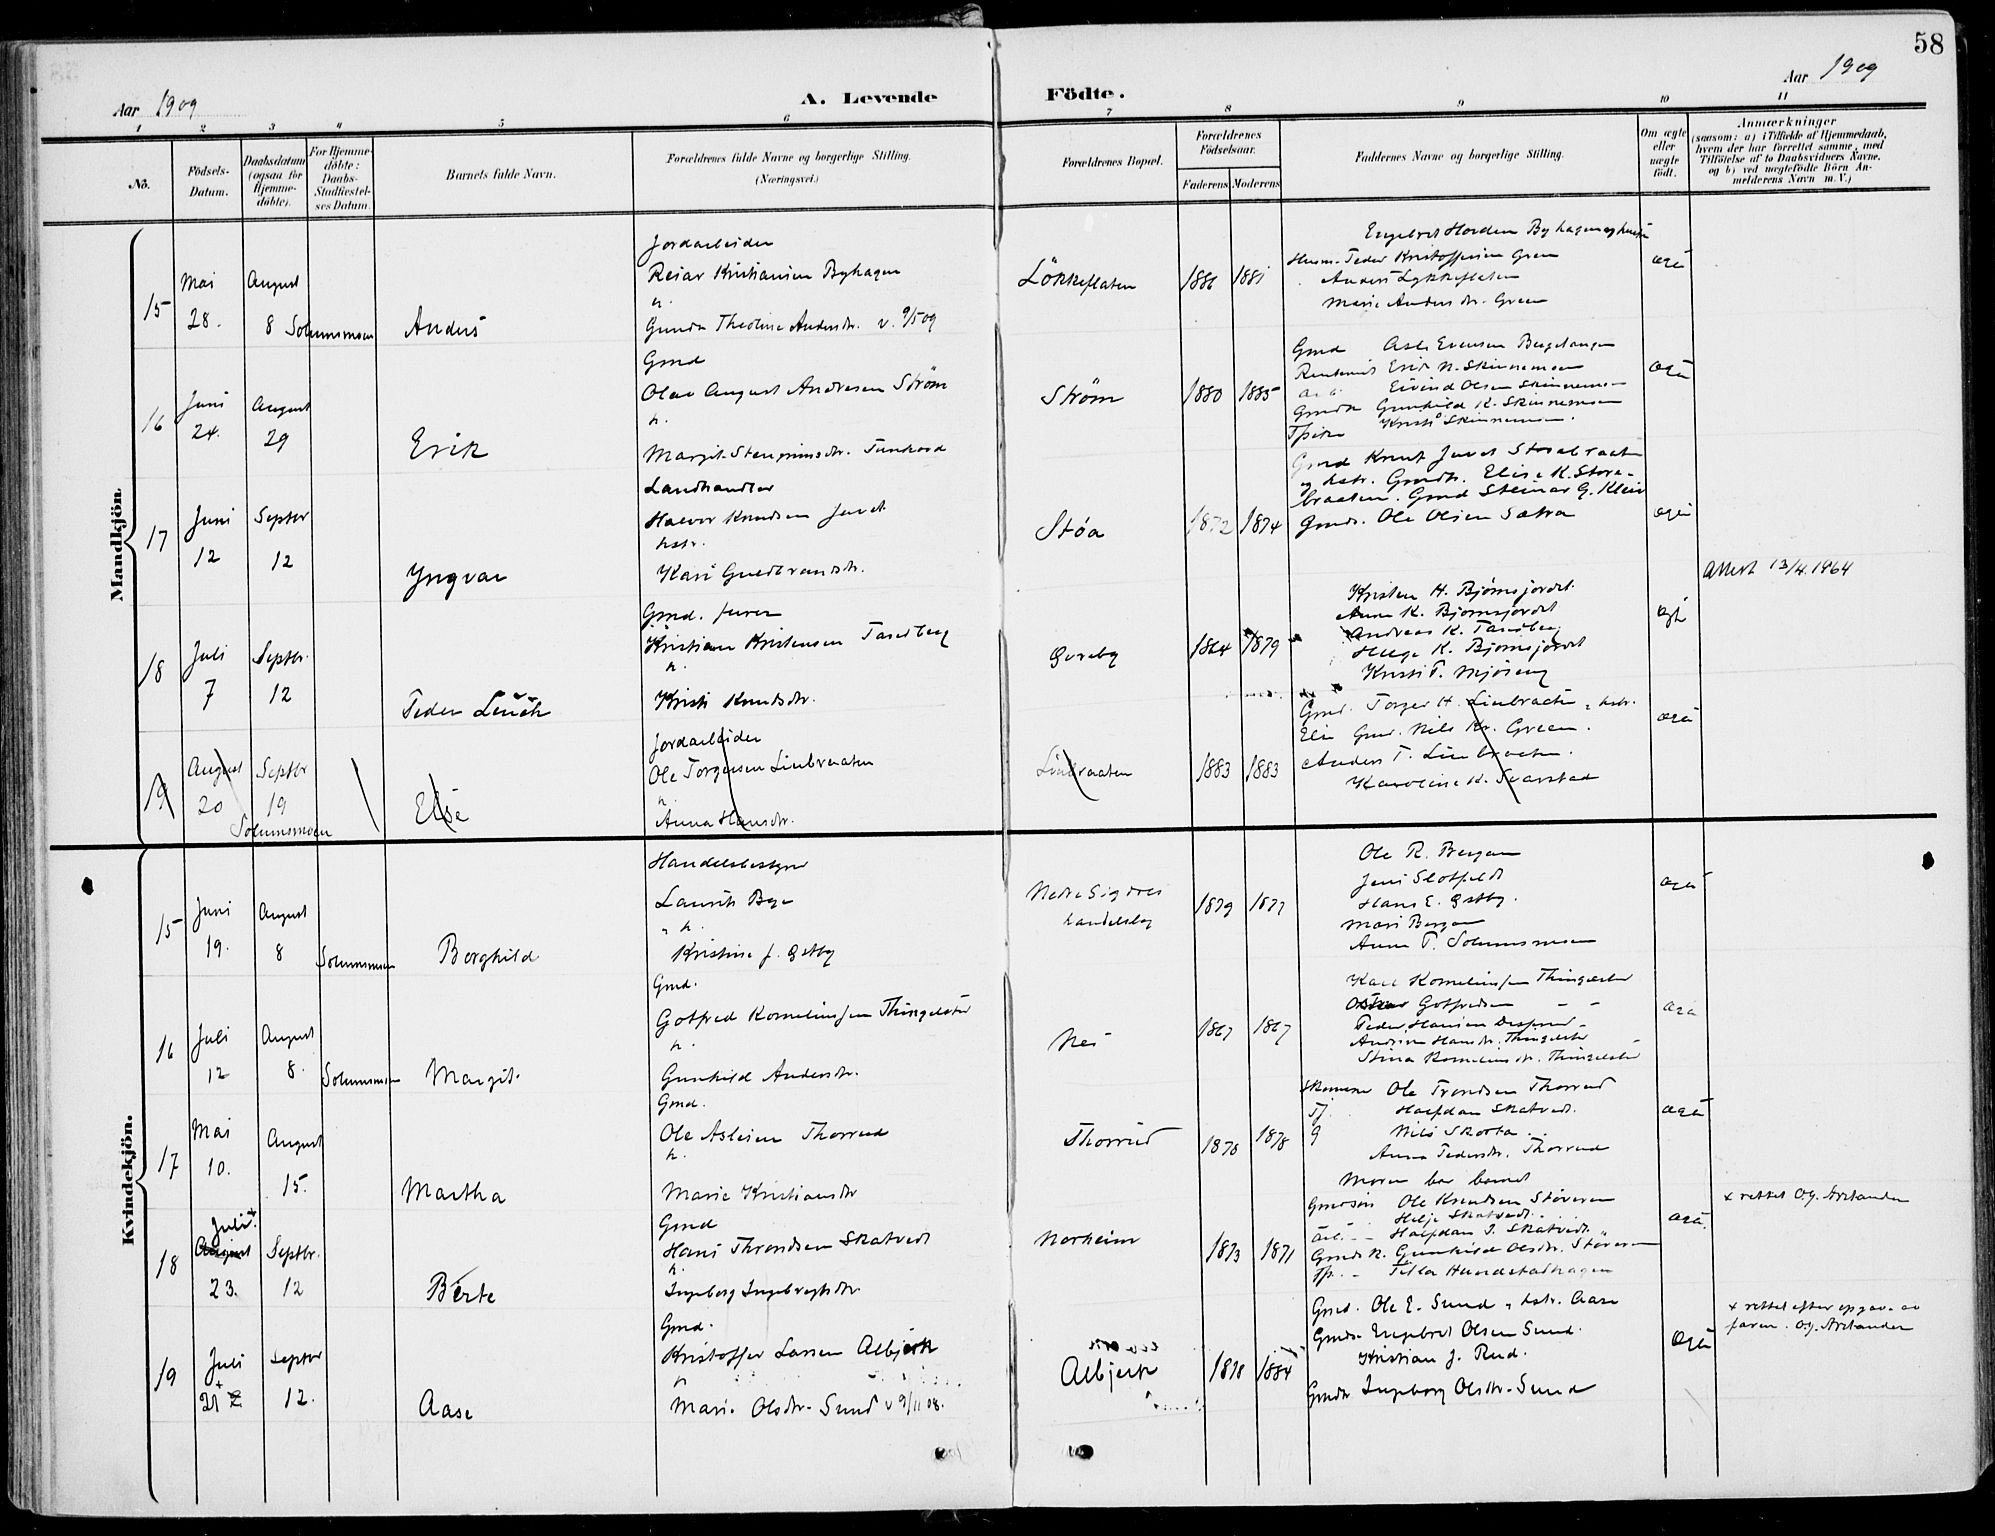 58
Aar 1909
A. Levende Födte.
Aar 1909
1 2 3 4 5 6 7 8 9 10 11
Nö.
Födsels-
Datum.
Daabsdatum
(ogsaa for
Hjemme-
döbte).
For Hjemme-
döbte:
Daabs-
Stadfæstel-
ses Datum.
Barnets fulde Navn.
Forældrenes fulde Navne og borgerlige Stilling.
(Næringsvei.)
Forældrenes Bopæl.
Forældrenes
Födselsaar.
Faderens Moderens
Faddernes Navne og borgerlige Stilling.
Om ægte
eller
uægte
födt.
Anmærkninger
(saasom: a) i Tilfælde af Hjemmedaab,
hvem der har forrettet samme, med
Tilföielse af to Daabsvidners Navne,
og b) ved uægtefödte Börn An-
melderens Navn m. V.)
Mandkjön.
15
Mai
28.
August
8 Solumsmoen
Anders
Jordarbeider
Reiar Kristiansen Byhagen
h.
Gunda Theoline Andersdr. v. 9/5 09
Lökkeflaten
1886 1881
Engebret Byhagen
Husm. Peder Kristoffersen Green
Anders Lykkeflaten
Marie Andersdr. Green
16
Juni
24.
August
29
Erik
Gmd
Olav August Andresen Strøm
h.
Margit Steingrimsdr. Tunhovd
Strøm
1880 1885
Gmd Asle Evensen
Erik N. Skinnemoen
Eivind Olsen Skinnemoen
Gunhild K. Skinnemoen
Kristi Skinnemoen.
17
Juni
12
Septbr
12
Yngvar
Landhandler
Halvor Knudsen Juvet
hstr.
Kari Guldbrandsdr.
Støa
1872 1874
Gmd Knut Juvet Storebraaten
og hstr. Gmdtr. Elise K. Store-
braaten. Gmd Steinar G. Kleiv
Gmds. Ole Olsen Sætra
18
Juli
7
Septbr.
12
Peder Leuch
Gmd.
Kristian Kristensen Tandberg
h.
Kristi Knudsdr.
1864 1879
Kristen H. Bjørnsjordet
Anne K. Bjørnsjordet
Andreas K. Tandberg
Helge K. Bjørnsjordet
Kristi T.
Attest 13/4.1964
19
August
20
Septbr
19
Solumsmoen
Else
Jordarbeider
Ole Torgersen Linbraaten
h.
Anna Hansdr.
Linbraaten
1883 1883
Gmd. Torger H. Linbraaten, hstr.
Elin Gmd. Nils Kr. Green.
Anders T. Linbraaten.
Karoline K. Svarstad
Kvindekjön.
15
Juni
19.
August
8
Solumsmoen
Borghild
Handelsbestyrer
Laurits Bye
h.
Kristine J. Østby
Nedre Sigdals
handelslag
1879 1877
Ole R. Bergan
Jens Slotfeldt
Hans E. Østby.
Mari Bergan
Anne T. Solumsmoen
16
Juli
12
August
8.
Solumsmoen
Margit
Gmd.
Gotfred Kornelius sen Thingelstad
h.
Gunhild Andersdr.
Nes
1867 1867
Karl Kornelius sen Thingelstad
Oskar Gotfredsen
Peder Hansen
Andrine Hansdr. Thingelstad
Stina Korneliusdr. Thingelstad
17
Mai
10.
August
15.
Martha
Gmd.
Ole Aslesen Thorrud
h.
Marie Kristiansdr
Thorrud
1878 1878
Ole Trondsen Thorrud
Halfdan Skatvedt.
Nils Skorta
Anna Pedersdr. Thorrud
Moren bar barnet
18
Juli +
August
23.
Septbr.
12
Berte
Gmd
Hans Throndsen Skatvedt
h.
Ingeborg Ingebretsdr
Norheim
1873 1871
Gmdsøn Ole Knudsen Støveren
Helje Skatvedt.
Halfdan T. Skatvedt.
Gmdsk. Gunhild Olsdr. Støveren
+ rettet O.G. Arstander
19
Juli
+
21
Septbr
12.
Aase
Gmd.
Kristoffer Larsen Albjerk
h
Mari Olsdr. Sund v 9/11 08.
Albjerk
1878 1884
Gmd. Ole E. Sund, hstr. Aase
Gmds. Engebret Olsen Sund.
Kristian J. Rud.
Gmdtr Ingeborg Olsdtr. Sund
+ rettet efter opgave av
faren. O.G. Arstander